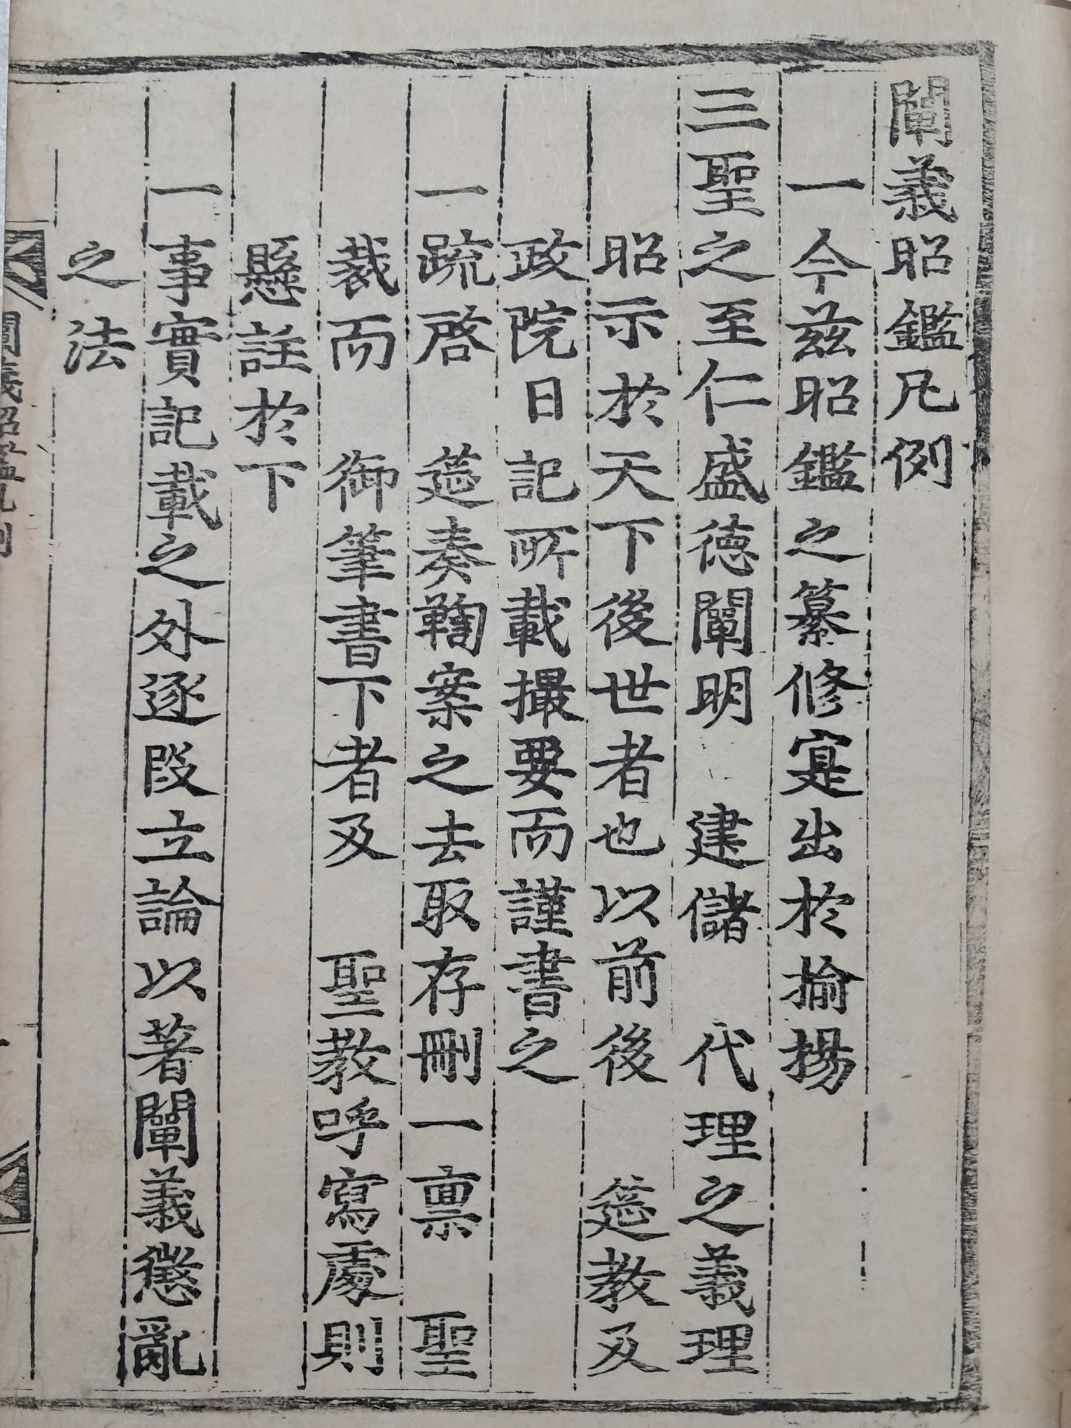 闡義昭鑑凡例
一今玆昭鑑之纂修寔出於揄揚
三聖之至仁盛德闡明 建儲 代理之義理
昭示於天下後世者也以前後 筵教及
政院日記所載撮要而謹書之
一䟽啓 筵奏鞫案之去取存刪一禀 聖
裁而 御筆書下者及 聖教呼寫處則
懸註於下
一事實記載之外逐段立論以著闡義懲亂
之法
闡義昭鑑凡例